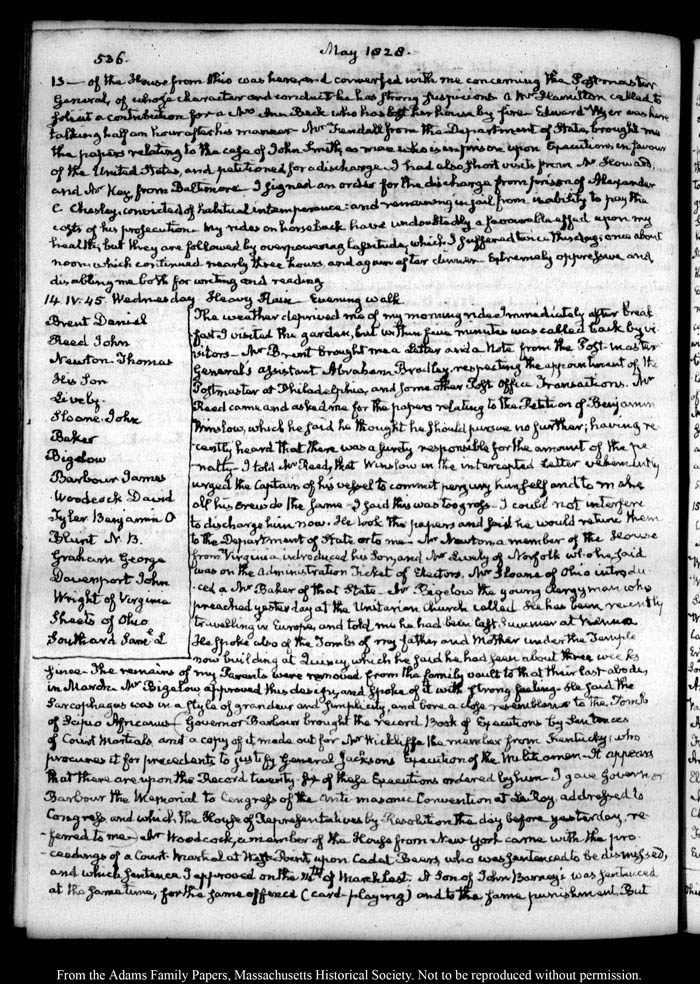 536.
May 1828.
13 — of the House from Ohio was here, and conversed with me concerning the Postmaster
General, of whose character and conduct he has strong suspicions. A Mr Hamilton called to
solicit a contribution for a Mrs Ann Beck who has lost her house by fire. Edward Wyer was here
talking half an hour after his manner. Mr Trendall from the Department of State, brought me
the papers relating to the case of John Smith, a man who is in prison upon Executions in favour
of the United States, and petitioned for a discharge. I had also short visits from Mr Howard,
and Mr Key from Baltimore. I signed an order for the discharge from prison of Alexander
C. Chesley, convicted of habitual intemperance: and remaining in jail from inability to pay the
costs of his prosecution. My rides on horseback have undoubtedly a favourable effect upon my
health; but they are followed by overpowering lassitude, which I suffered twice this day; once about
noon which continued nearly three hours and again after dinner. Extremely oppressive and
disabling me both for writing and reading
14. IV: 45. Wednesday. Heavy Rain. Evening walk
Brent Daniel
Reed John
Newton. Thomas
His Son
Lively.
Sloane. John
Baker
Bigelow
Barbour James
Woodcock David
Tyler Benjamin O
Blunt N. B.
Graham George
Davenport John
Wright of Virginia
Sheets of Ohio
Southard Saml L
The weather deprived me of my morning ride. Immediately after break
fast I visited the garden, but within five minutes was called back by vi
sitors — Mr Brent brought me a Letter and a Note from the Post-master
General's assistant Abraham Bradley, respecting the appointment of the
Postmaster at Philadelphia, and some other Post Office Transactions. Mr
Reed came and asked me for the papers relating to the Petition of Benjamin
Winslow, which he said he thought he should pursue no further; having re
cently heard that there was a surety responsible for the amount of the pe
nalty. I told Mr Reed, that Winslow in the intercepted Letter vehemently
urged the Captain of his vessel to commit perjury himself and to make
all his crew do the same. I said this was too gross. I could not interfere
to discharge him now. He took the papers and said he would return them
to the Department of State or to me. Mr Newton a member of the House
from Virginia introduced his Son, and Mr Lively of Norfolk who he said
was on the Administration Ticket of Electors. Mr Sloane of Ohio introdu
ced a Mr Baker of that State. Mr Bigelow the young clergyman who
preached yesterday at the Unitarian Church called. He has been recently
travelling in Europe, and told me he had been last Summer at Vienna
He spoke also of the Tombs of my father and Mother under the Temple
now building at Quincy, which he said he had seen about three weeks
since. The remains of my Parents were removed from the family vault to that their last abode,
in March. Mr Bigelow approved this design, and spoke of it with strong feeling. He said the
Sarcophagus was in a style of grandeur and simplicity, and bore a close resemblance to the Tomb
of Scipio Africanus. Governor Barbour brought the record Book of Executions by Sentences
of Court Martials, and a copy of it made out for Mr Wickliffe the member from Kentucky; who
procures it for precedents to justify General Jackson's Execution of the Militia men. It appears
that there are upon the Record twenty-six of these Executions ordered by him. I gave Governor
Barbour the Memorial to Congress of the Anti masonic Convention at Le Roy, addressed to
Congress, and which the House of Representatives by Resolution the day before yesterday, re-
ferred to me. Mr Woodcock, a member of the House from New York came with the pro-
ceedings of a Court-Martial at West-Point, upon Cadet Beurs, who was sentenced to be dismissed,
and which sentence I approved on the of March last. A Son of John Barney's was sentenced
at the same time, for the same offence (card-playing) and to the same punishment. But
From the Adams Family Papers, Massachusetts Historical Society. Not to be reproduced without permission.